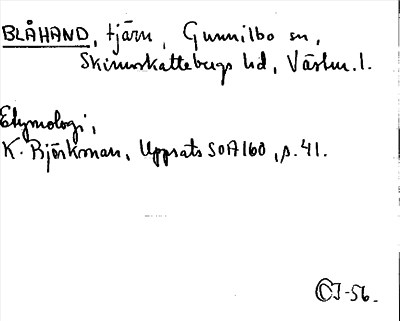 BLÅHAND, tjärn, Gunnilbo sn,
Skinnskattebergs hd, Västm.l.
Etymologi,
K. Björkman, Uppsats SOA 160, s. 41.
CJ-56.